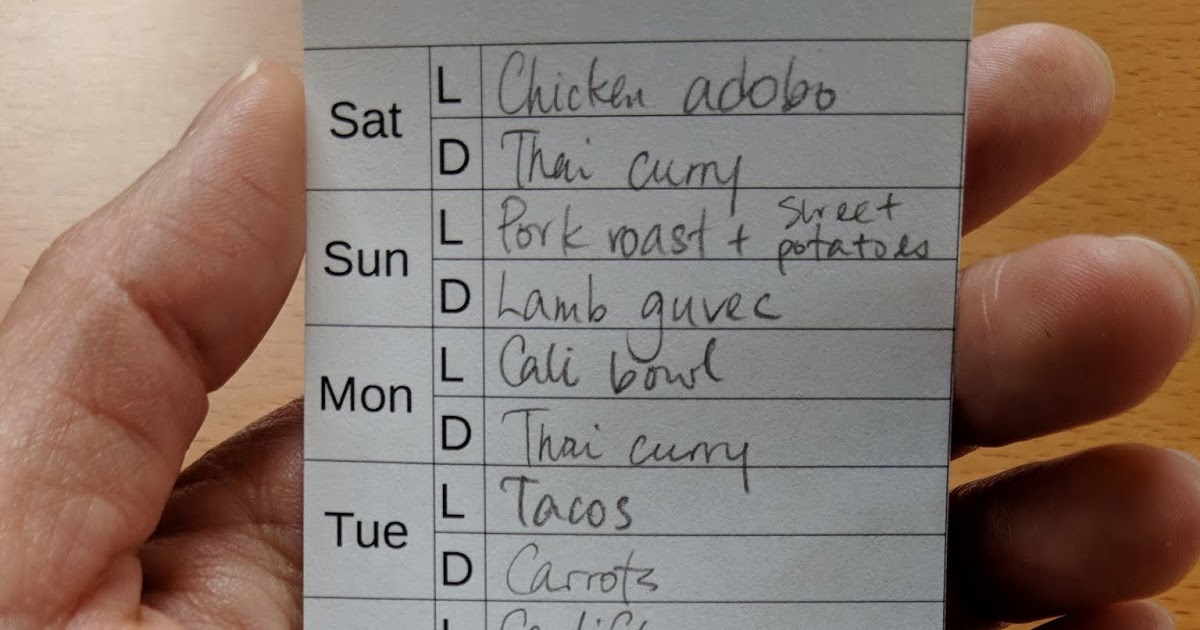 Sat L Chicken adobo
D Thai curry
Sun L Pork roast + sweet potatoes
D Lamb guvec
Mon L Cali bowl
D Thai curry
Tue L Tacos
D Carrots
L